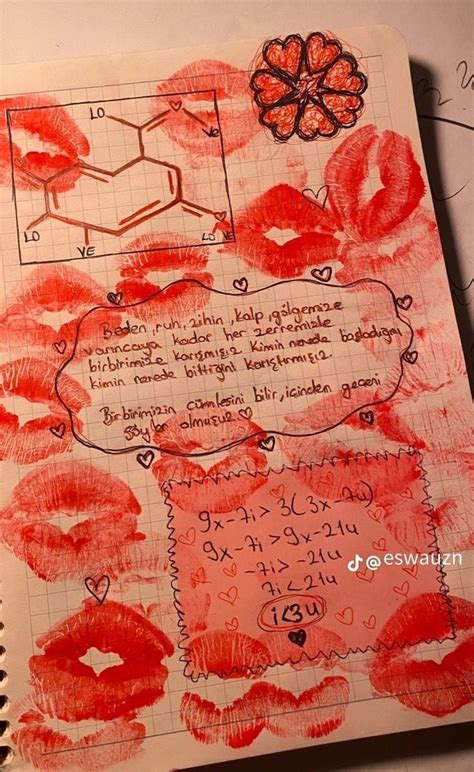 LO
Ve
LO
VE
LO VE
Beden, ruh, zihin, kalp, gölgemize
varıncaya kadar her zerremizle
birbirimize karışmışız. Kimin nerede başladığını
kimin nerede bittiğini karıştırmışız.
Birbirimizin cümlesini bilir, içinden geçeni
söyler olmuşuz
9x-7i > 3(3x-7u)
9x-7i > 9x-21u
-7i > -21u
7i < 21u
i<3u
@eswauzn